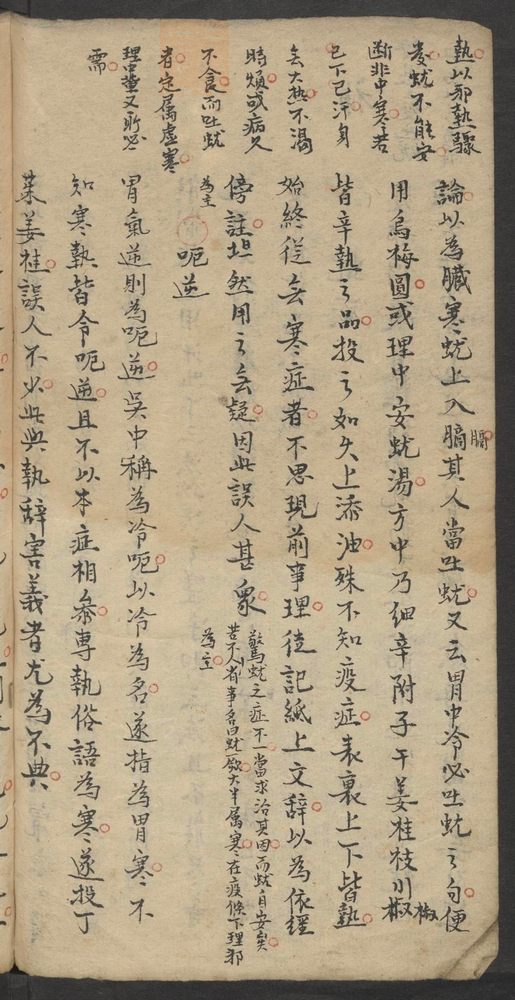 熱以邪熱驟
發蚘不能安
斷非中寒者
已下已汗身
无大热不渴
時煩或病久
不食而吐蚘
者定属虛寒
理中輩又所必
需
論以為臟寒蚘上入膈其人當吐蚘又云胃中冷必吐蚘之句便
膈
用烏梅圓或理中安蚘湯方中乃細辛附子干姜桂枝川椒
椒
皆辛熱之品投之如火上添油殊不知疫症表裏上下皆熱
始終從无寒症者不思現前事理徒記紙上文辞以為依經
傍註坦然用之无疑因此誤人甚眾
驚蚘之症不一當求治其因而蚘自安矣
若不人省事名曰蚘厥大半属寒在疫條下理邪
為主
為主
呃逆
胃氣逆則為呃逆吳中稱為冷呃以冷為名遂指為胃寒不
知寒熱皆令呃逆且不以本症相參專執俗語為寒遂投丁
茱姜桂誤人不少此與執辞害義者尤為不典